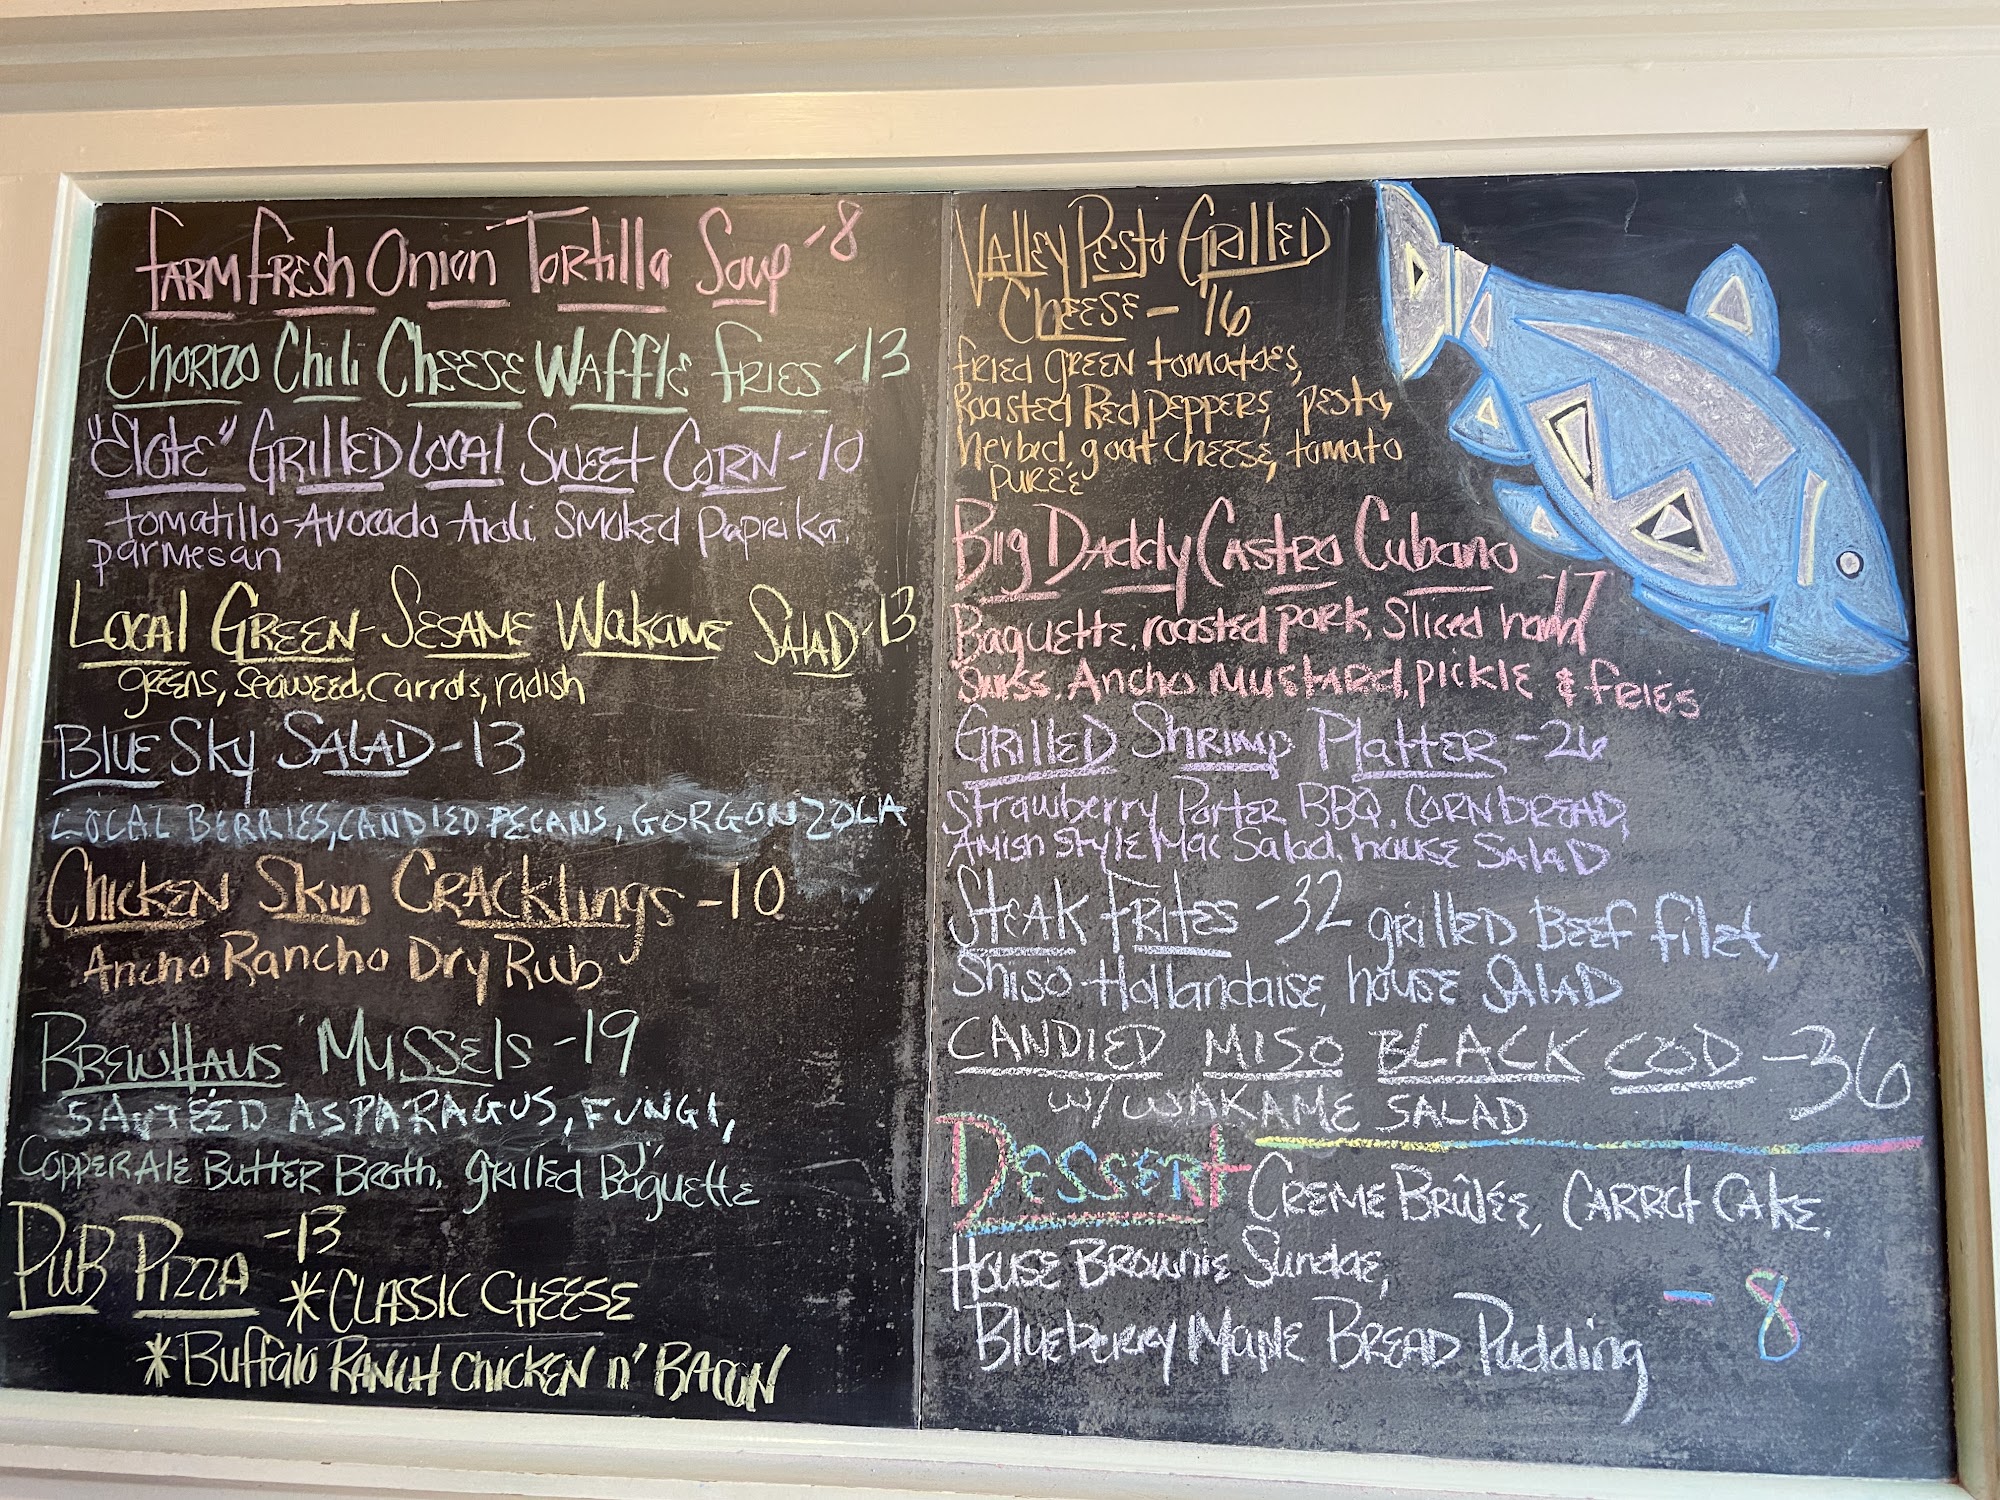 Farm Fresh Onion Tortilla Soup - 8
Chorizo Chili Cheese Waffle Fries - 13
"Elote" Grilled Local Sweet Corn - 10
tomatillo-Avocado Aioli, smoked paprika,
parmesan
Local Green-Sesame Wakame Salad - 13
greens, seaweed, carrots, radish
Blue Sky Salad - 13
LOCAL BERRIES, CANDIED PECANS, GORGONZOLA
Chicken Skin Cracklings - 10
Ancho Rancho Dry Rub
Brewhaus Mussels - 19
SAUTEED ASPARAGUS, FUNGI,
Copper Ale Butter Broth, grilled Baguette
Pub Pizza - 13
* CLASSIC CHEESE
* Buffalo Ranch chicken n' Bacon
Valley Pesto Grilled
Cheese - 16
fried green tomatoes,
Roasted Red peppers, pesto,
herbed goat cheese, tomato
pureé
Big Daddy Castro Cubano
- 17
Baguette, roasted pork, Sliced ham
Swiss, Ancho Mustard, pickle & fries
Grilled Shrimp Platter - 26
Strawberry Porter BBQ, cornbread,
Amish Style Mac Salad, house SALAD
Steak Frites - 32 grilled Beef filet,
Shiso Hollandaise, house SALAD
CANDIED MISO BLACK COD - 36
W/ WAKAME SALAD
Dessert Creme Brûleé, Carrot Cake,
House Brownie Sundae,
Blueberry Maine Bread Pudding - 8